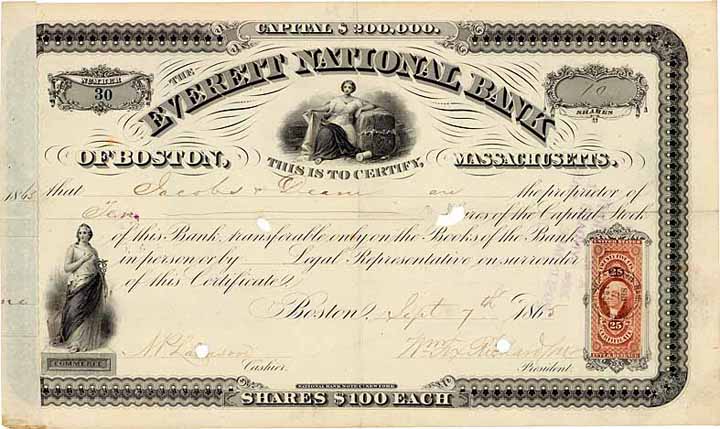 CAPITAL $200,000.
NUMBER
30
10
SHARES
THE
EVERETT NATIONAL BANK
OF BOSTON,
THIS IS TO CERTIFY,
MASSACHUSETTS.
1865
that Jacobs & Deane are the proprietor of
Ten Shares of the Capital Stock
of this Bank, transferable only on the Books of the Bank,
in person or by Legal Representative on surrender
of this Certificate
Boston, Sept 7th 1865
Cashier.
President.
COMMERCE
UNITED STATES
25
25
CERTIFICATE
INTER. REVENUE
NATIONAL BANK NOTE CO. NEW YORK
SHARES $100 EACH